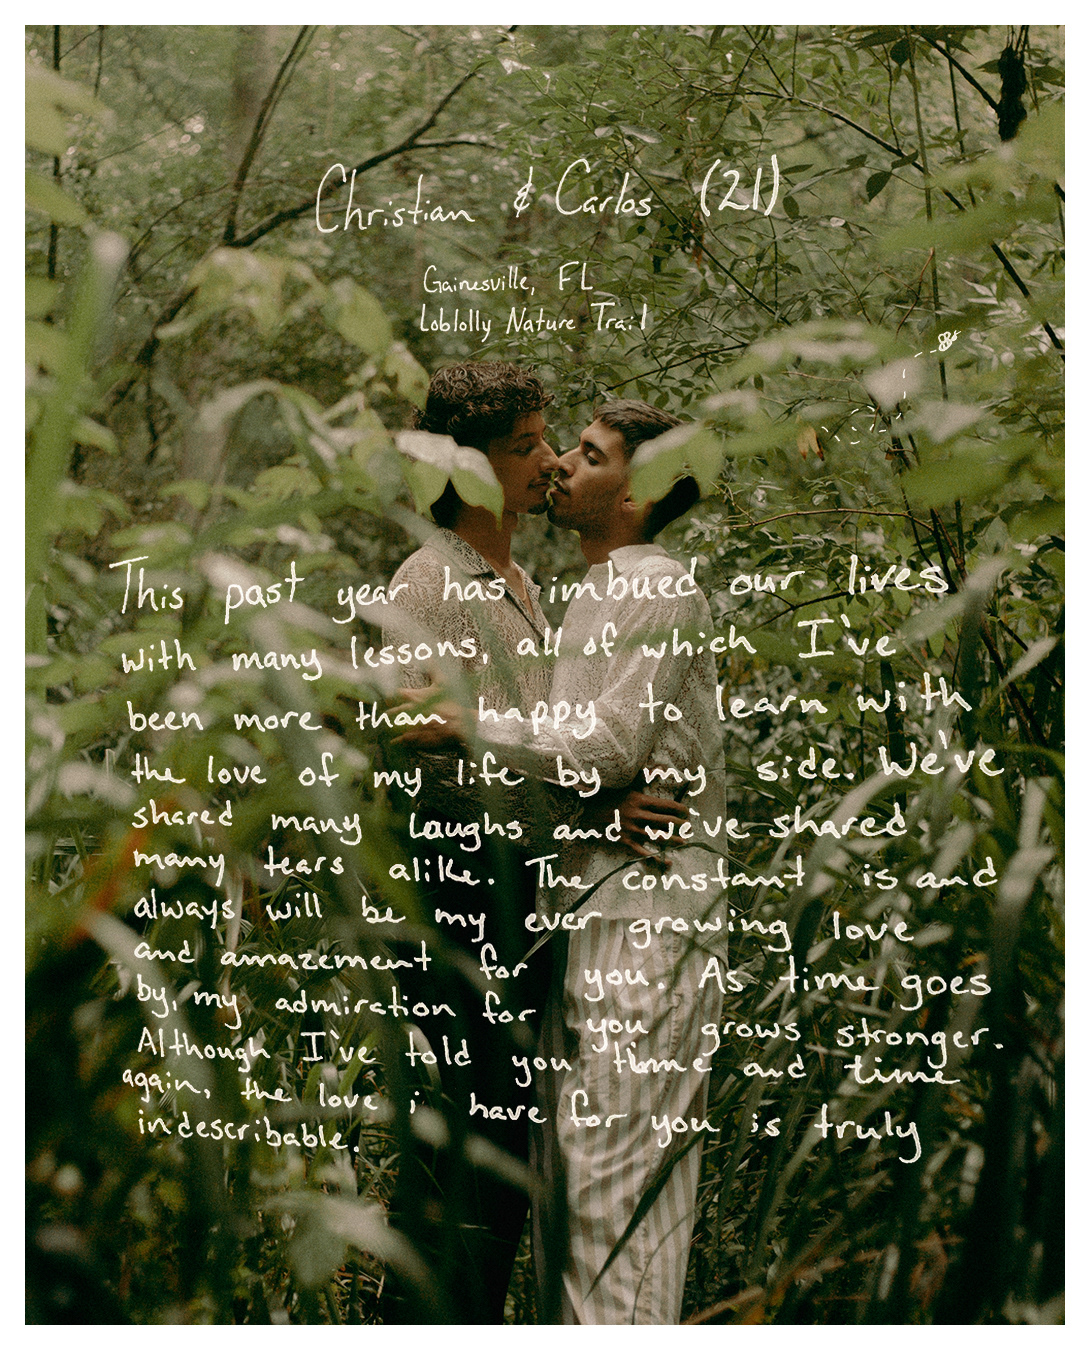 Christian & Carlos (21)
Gainesville, FL
Loblolly Nature Trail
This past year has imbued our lives
with many lessons, all of which I've
been more than happy to learn with
the love of my life by my side. We've
shared many laughs and we've shared
many tears alike. The constant is and
always will be my ever growing love
and amazement for you. As time goes
by, my admiration for you grows stronger.
Although I've told you time and time
again, the love i have for you is truly
indescribable.